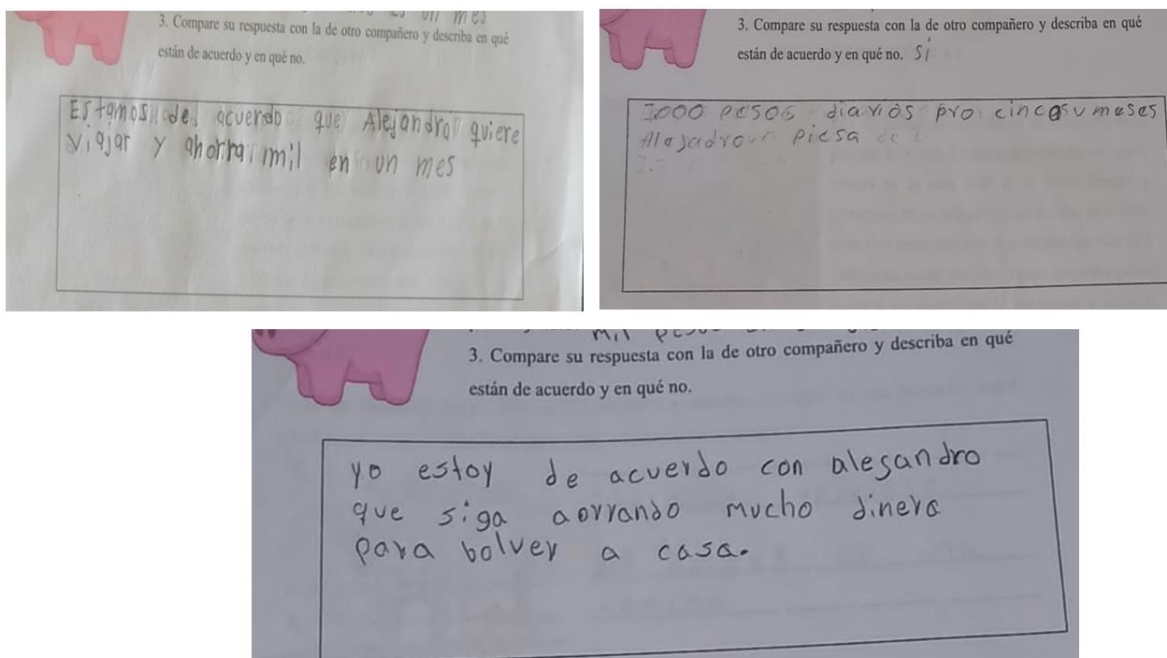 un mes
3. Compare su respuesta con la de otro compañero y describa en qué
están de acuerdo y en qué no.
Estamos de acuerdo que Alejandra quiere
viajar y ahorra mil en un mes
3. Compare su respuesta con la de otro compañero y describa en qué
están de acuerdo y en qué no. Si
1000 pesos diarios pro cinco su meses
piesa
mil
3. Compare su respuesta con la de otro compañero y describa en qué
están de acuerdo y en qué no.
yo estoy de acuerdo con alesandro
que siga aorrando mucho dinero
para bolver a casa.